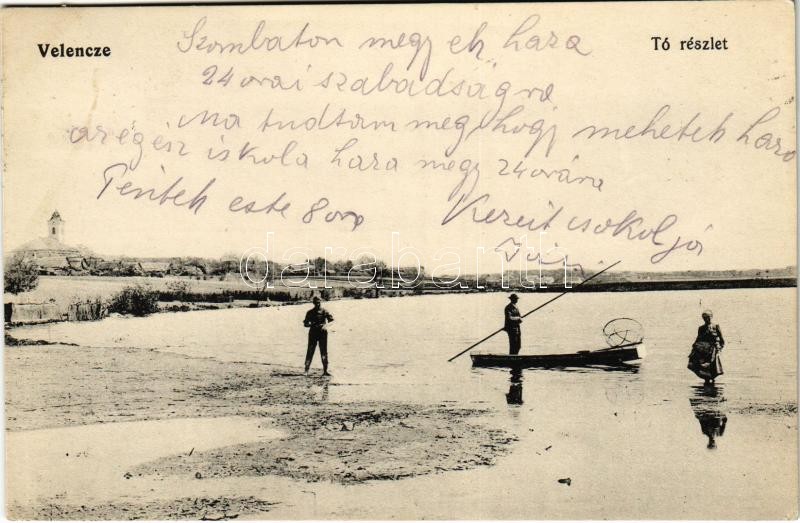 Velencze
Tó részlet
Szombaton megyek haza
24 orai szabadságra
Ma tudtam meg hogy mehetek haza
az egész iskola haza megy 24 orára
Péntek este 8 ora
Kezeit csokolja
darabanth